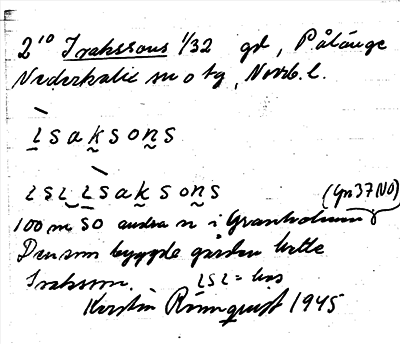 2¹⁰ Isakssons 1/32 gd, Pålänge
Nederkalix sn o tg, Norrb. l.
ı s a k s o n s
ı s ʟ ı s a k s o n s
(Gr 37 NO)
100 m SO andra n i Granholmen
Den som byggde gården hette
Isaksson. ısʟ = hos
Kerstin Rönnqvist 1945